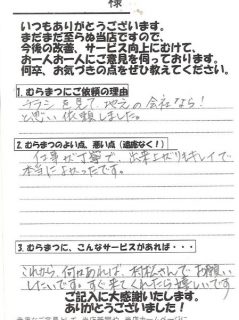 様
いつもありがとうございます。
まだまだ至らぬ当店ですので、
今後の改善、サービス向上にむけて、
お一人お一人にご意見を伺っております。
何卒、お気づきの点をぜひ教えてください。
1. むらまつにご依頼の理由
チラシを見て地元の会社なら!
と思い依頼しました。
2. むらまつのよい点、悪い点（遠慮なく!）
仕事が丁寧で、出来上がりもキレイで
本当によかったです。
3. むらまつに、こんなサービスがあれば・・・
これから、何かあれば、村松さんでお願い
したいです。すぐ来てくれたら嬉しいです
ご記入に大感謝いたします。
ありがとうございました!